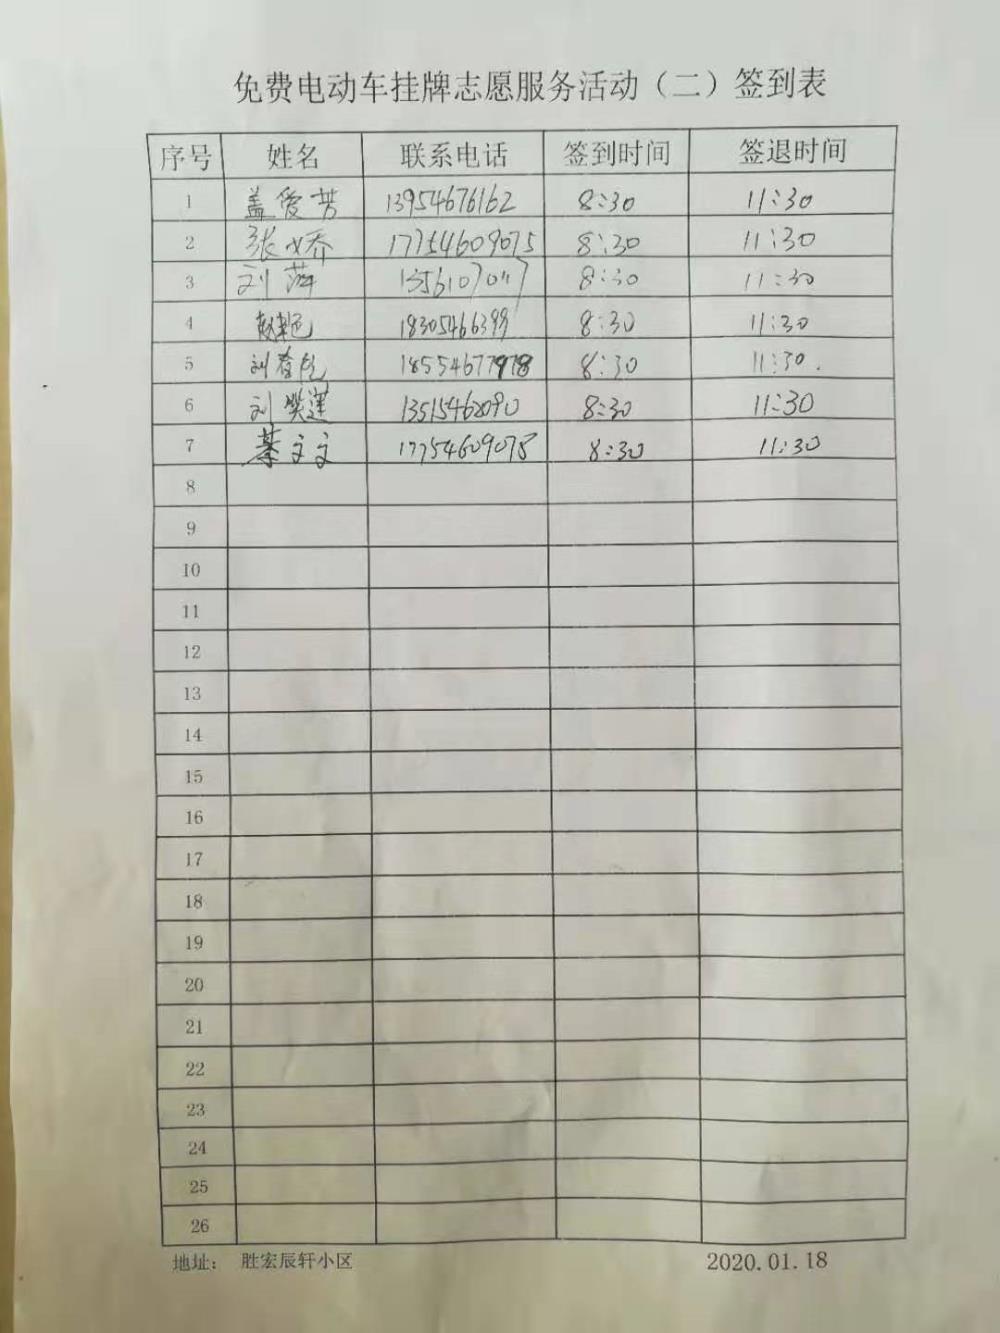 免费电动车挂牌志愿服务活动（二）签到表
序号 姓名 联系电话 签到时间 签退时间
1 盖爱芳 13954676162 8:30 11:30
2 张娇 17754609075 8:30 11:30
3 刘萍 8:30 11:30
4 赵艳 18305466399 8:30 11:30
5 刘 18554677978 8:30 11:30.
6 刘 8:30 11:30
7 綦文文 17754609075 8:30 11:30
8
9
10
11
12
13
14
15
16
17
18
19
20
21
22
23
24
25
26
地址： 胜宏辰轩小区 2020.01.18